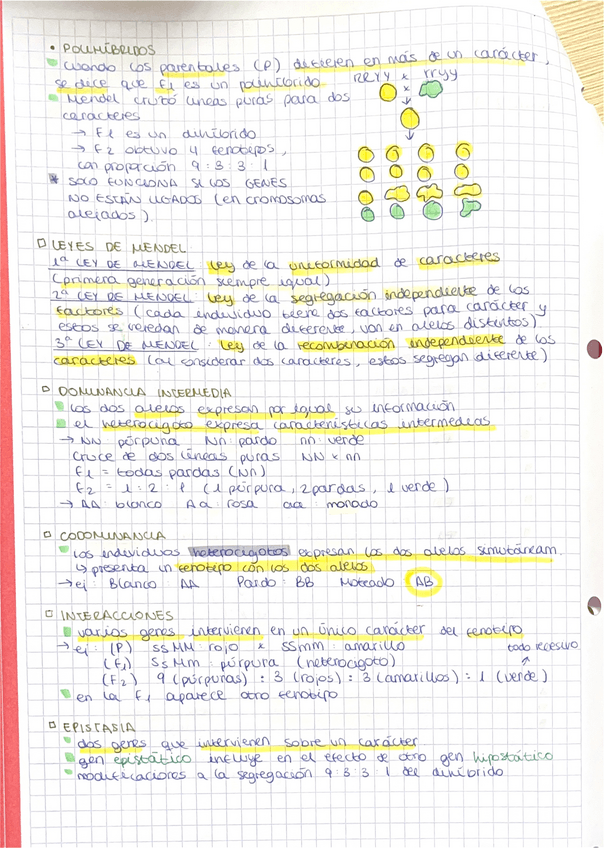 • POLIHÍBRIDOS
Cuando los parentales (P) difieren en más de un carácter,
se dice que F1 es un polihíbrido.
RRYY x rryy
Mendel cruzó líneas puras para dos
caracteres
→ F1 es un dihíbrido
→ F2 obtuvo 4 fenotipos,
con proporción 9:3:3:1
* SOLO FUNCIONA SI LOS GENES
NO ESTÁN LIGADOS (en cromosomas
alejados).
LEYES DE MENDEL
1ª LEY DE MENDEL: Ley de la uniformidad de caracteres
(primera generación siempre igual)
2ª LEY DE MENDEL: Ley de la segregación independiente de los
factores (cada individuo tiene dos factores para carácter y
estos se heredan de manera diferente, van en alelos distintos)
3ª LEY DE MENDEL: Ley de la recombinación independiente de los
caracteres (al considerar dos caracteres, estos segregan diferente)
DOMINANCIA INTERMEDIA
los dos alelos expresan por igual su información
el heterocigoto expresa características intermedias
→ NN: púrpura Nn: pardo nn: verde
Cruce de dos líneas puras NN x nn
F1 = todas pardas (Nn)
F2 = 1:2:1 (1 púrpura, 2 pardas, 1 verde)
→ AA: blanco Aa: rosa aa: morado
CODOMINANCIA
Los individuos heterocigotos expresan los dos alelos simultáneam.
↳ presenta un fenotipo con los dos alelos
→ ej: Blanco: AA Pardo: BB Moteado: AB
INTERACCIONES
varios genes intervienen en un único carácter del fenotipo
→ ej: (P) SSMM: rojo x SSmm: amarillo
todo recesivo
(F1) SsMm: púrpura (heterocigoto)
(F2) 9 (púrpuras) : 3 (rojos) : 3 (amarillos) : 1 (verde)
en la F1 aparece otro fenotipo
EPISTASIA
dos genes que intervienen sobre un carácter
gen epistático influye en el efecto de otro gen hipostático
modificaciones a la segregación 9:3:3:1 del dihíbrido